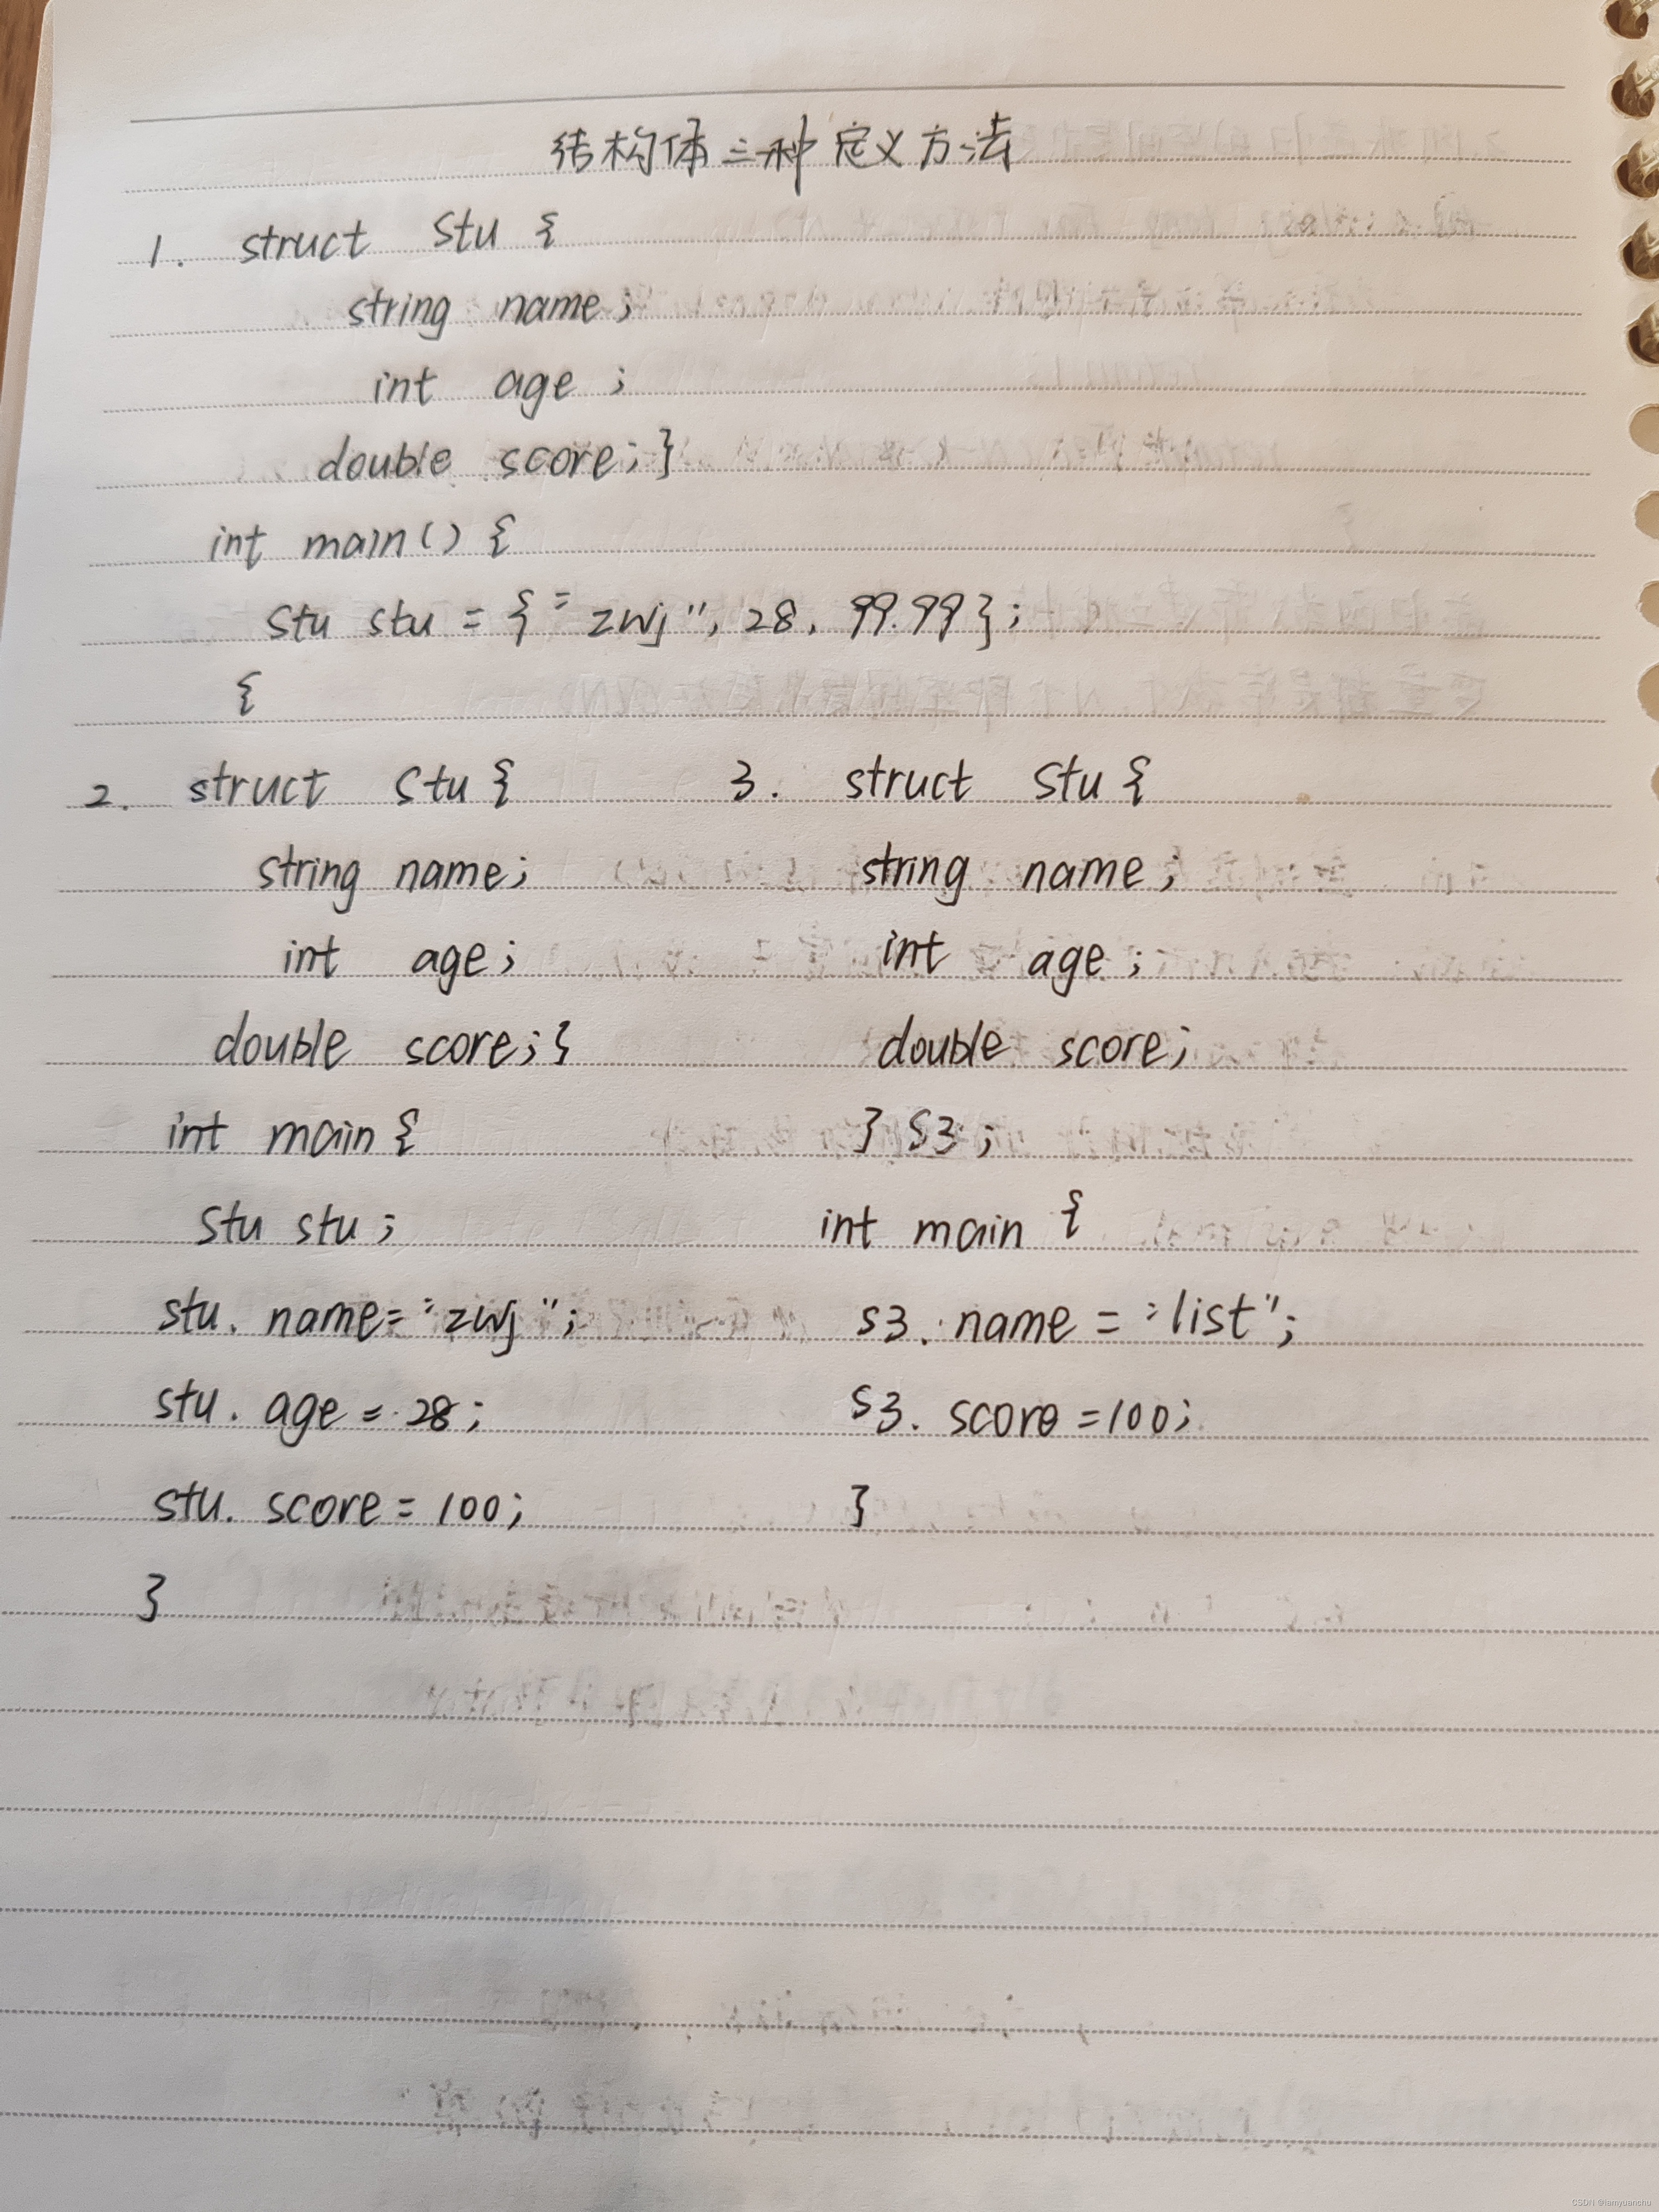 结构体三种定义方法
1. struct Stu {
string name;
int age;
double score;}
int main() {
Stu stu = {"zwj", 28, 99.99};
{
2. struct Stu {
string name;
int age;
double score;}
int main {
Stu stu;
stu.name="zwj";
stu.age=28;
stu.score=100;
}
3. struct Stu {
string name;
int age;
double score;
} S3;
int main {
S3.name="list";
S3.score=100;
}
CSDN @iamyuanchu